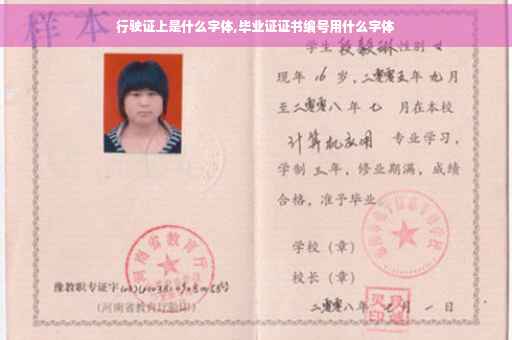 行驶证上是什么字体,毕业证证书编号用什么字体
样本
学生 段毅琳 性别 女
现年 16 岁,二零零五年 九月
至二零零八年 七 月在本校
计算机应用 专业学习,
学制 三 年,修业期满,成绩
合格,准予毕业
学校(章)
校长(章)
二零零八年 月 一 日
豫教职专证字
(河南省教育厅验印)
河南省教育厅